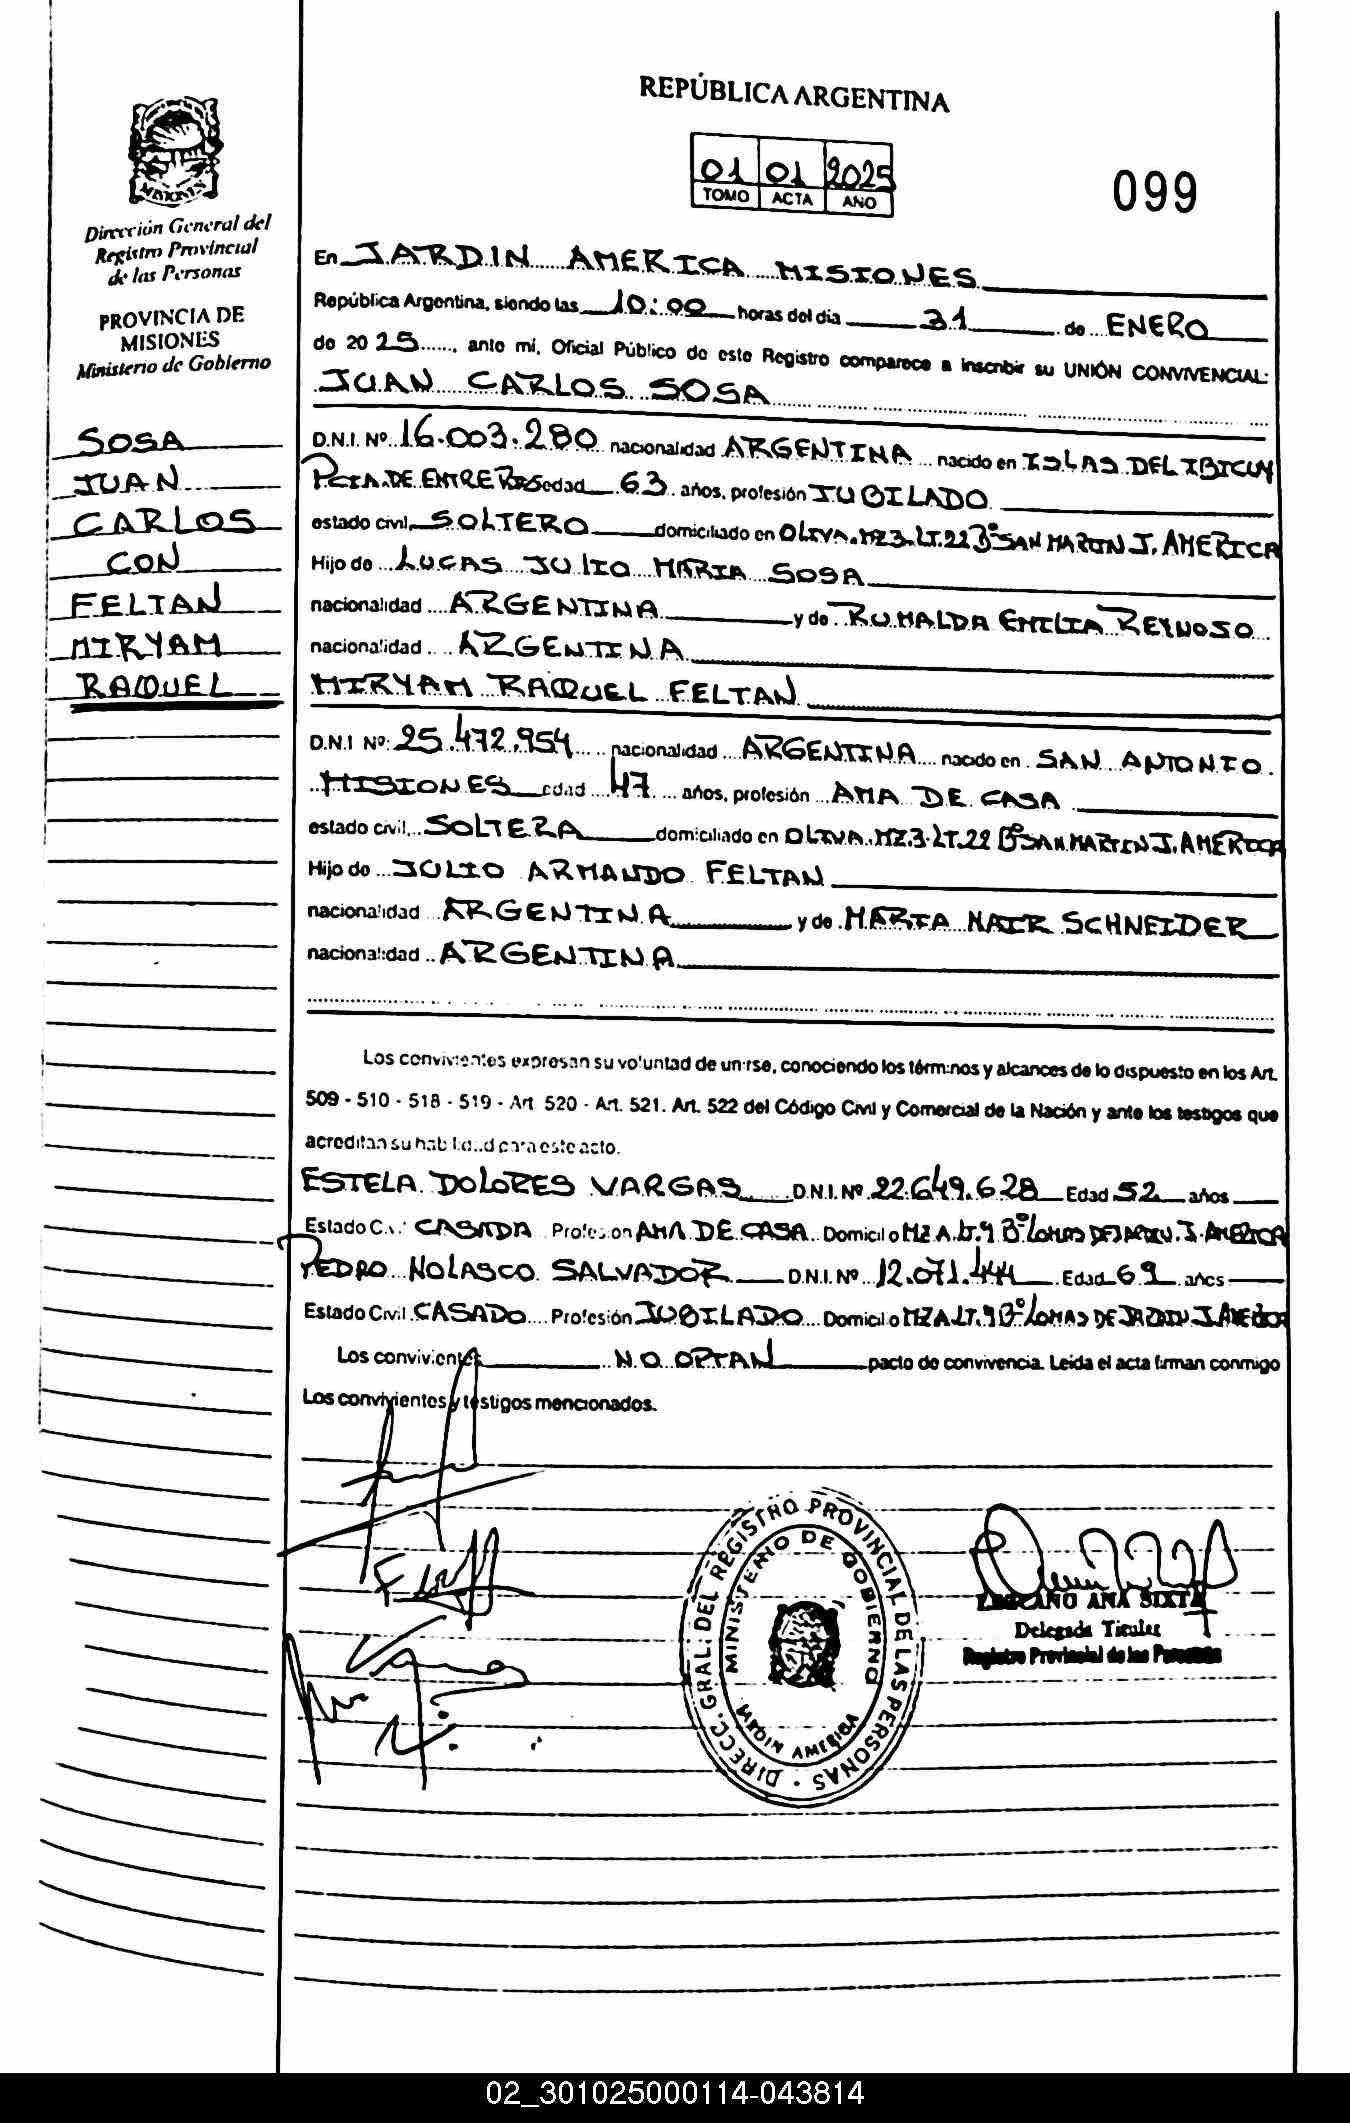 REPÚBLICA ARGENTINA
01 01 2025
TOMO ACTA AÑO
099
Dirección General del
Registro Provincial
de las Personas
PROVINCIA DE
MISIONES
Ministerio de Gobierno
SOSA
JUAN
CARLOS
CON
FELTAN
MIRYAM
RAQUEL
En JARDIN AMERICA MISIONES
República Argentina, siendo las 10:00 horas del día 31 de ENERO
de 2025, ante mí, Oficial Público de este Registro comparece a inscribir su UNIÓN CONVIVENCIAL:
JUAN CARLOS SOSA
D.N.I. Nº 16.003.280 nacionalidad ARGENTINA nacido en ISLAS DEL IBICUY
PCIA. DE ENTRE RIOS edad 63 años, profesión JUBILADO
estado civil SOLTERO domiciliado en OLIVA. MZ3. LT.22 Bº SAN MARTIN J. AMERICA
Hijo de LUCAS JULIO MARIA SOSA
nacionalidad ARGENTINA y de ROMALDA EMILIA REYNOSO
nacionalidad ARGENTINA
MIRYAM RAQUEL FELTAN
D.N.I Nº: 25.472.954 nacionalidad ARGENTINA nacido en SAN ANTONIO
MISIONES edad 47 años, profesión AMA DE CASA
estado civil SOLTERA domiciliado en OLIVA. MZ.3. LT.22 Bº SAN MARTIN J. AMERICA
Hijo de JULIO ARMANDO FELTAN
nacionalidad ARGENTINA y de MARTA NAIR SCHNEIDER
nacionalidad ARGENTINA
Los convivientes expresan su voluntad de unirse, conociendo los términos y alcances de lo dispuesto en los Art.
509 - 510 - 518 - 519 - Art. 520 - Art. 521. Art. 522 del Código Civil y Comercial de la Nación y ante los testigos que
acreditan su habilidad para este acto.
ESTELA DOLORES VARGAS D.N.I. Nº 22.649.628 Edad 52 años
Estado Civil CASADA Profesión AMA DE CASA Domicilio MZ A. LT.9 Bº LOMAS DE JARDIN J. AMERICA
PEDRO NOLASCO SALVADOR D.N.I. Nº 12.071.444 Edad 69 años
Estado Civil CASADO Profesión JUBILADO Domicilio MZ A LT.9 Bº LOMAS DE JARDIN J. AMERICA
Los convivientes NO OPTAN pacto de convivencia. Leída el acta firman conmigo
Los convivientes y testigos mencionados.
DIRECC. GRAL. DEL REGISTRO PROVINCIAL DE LAS PERSONAS
MINISTERIO DE GOBIERNO
JARDIN AMERICA
ANA SIXTA
Delegada Titular
Registro Provincial de las Personas
02_301025000114-043814